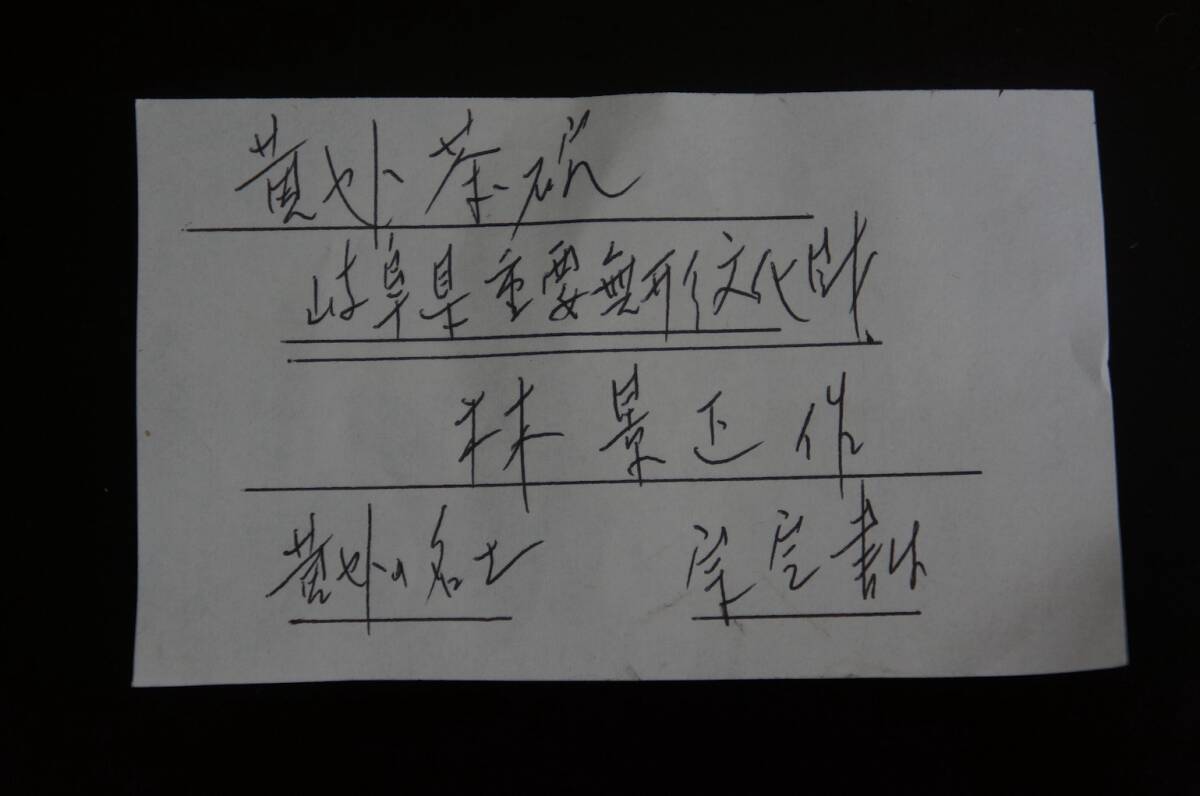 黄セト茶碗
岐阜県重要無形文化財
林景正作
黄セトの名士 安定書付